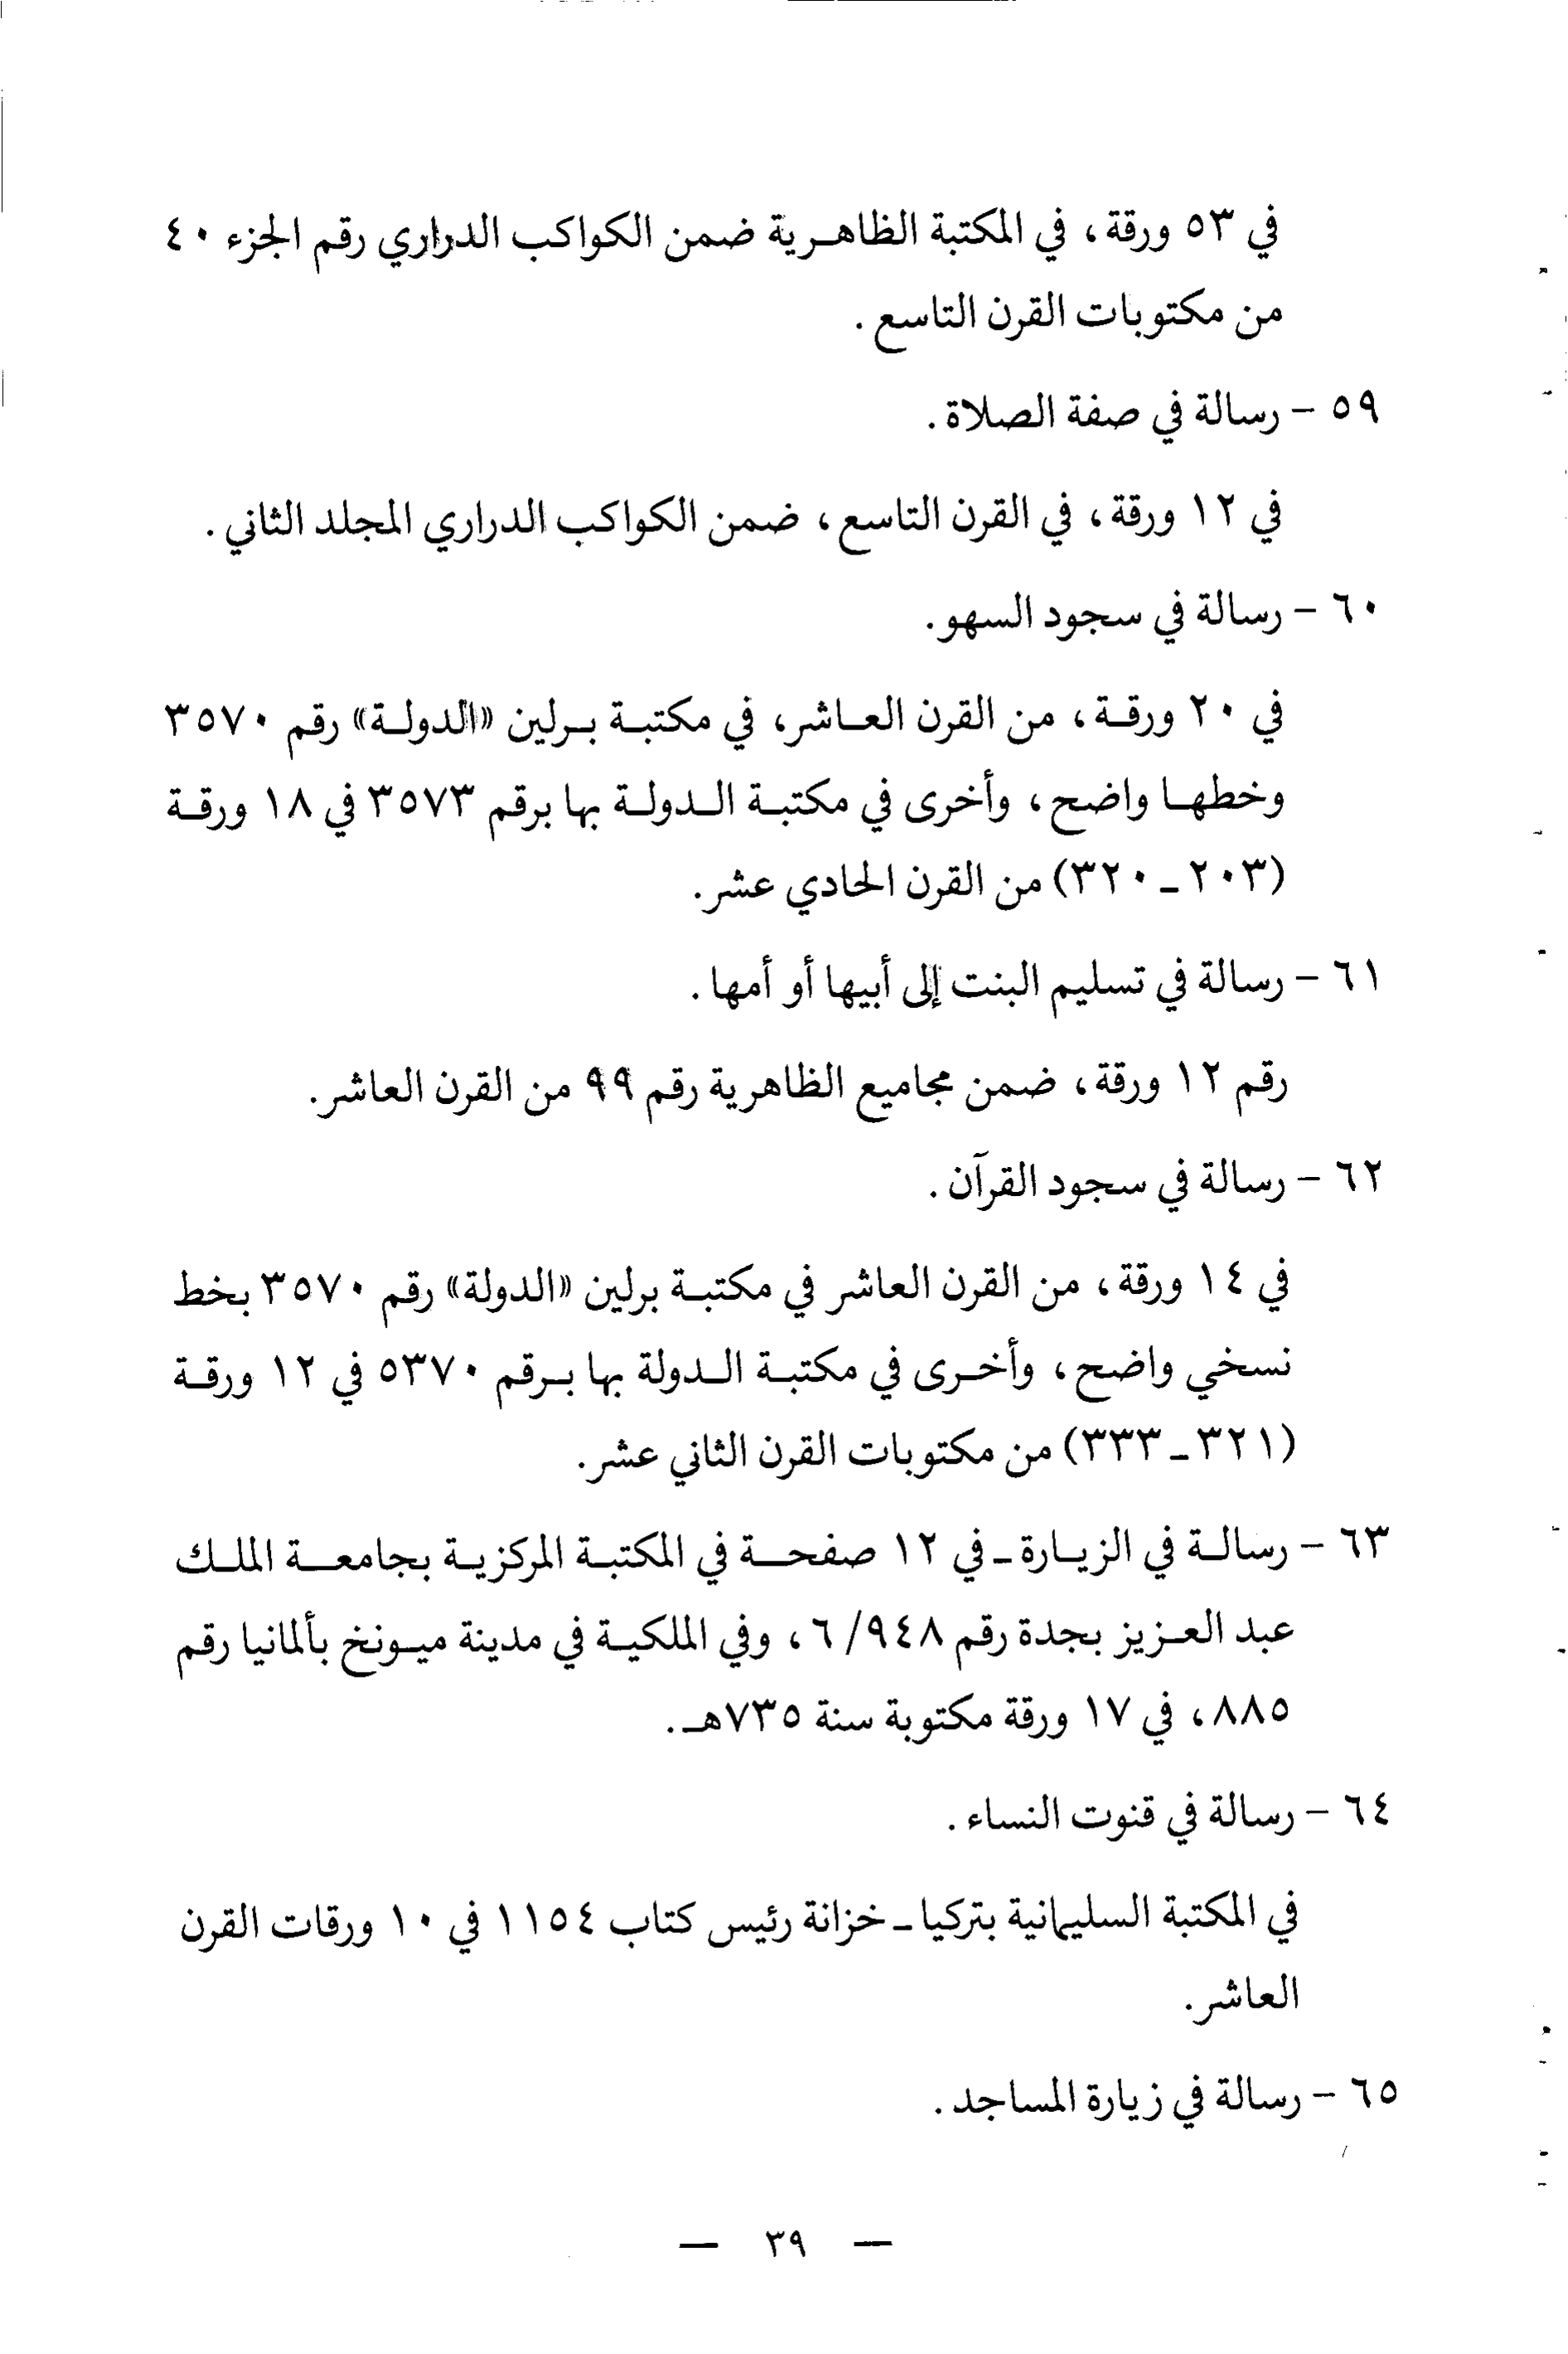 في ٥٣ ورقة، في المكتبة الظاهرية ضمن الكواكب الدراري رقم الجزء ٤٠
من مكتوبات القرن التاسع.
٥٩ - رسالة في صفة الصلاة.
في ١٢ ورقة، في القرن التاسع، ضمن الكواكب الدراري المجلد الثاني.
٦٠ - رسالة في سجود السهو.
في ٢٠ ورقة، من القرن العاشر، في مكتبة برلين «الدولة» رقم ٣٥٧٠
وخطها واضح، وأخرى في مكتبة الدولة بها برقم ٣٥٧٣ في ١٨ ورقة
(٢٠٣ - ٣٢٠) من القرن الحادي عشر.
٦١ - رسالة في تسليم البنت إلى أبيها أو أمها.
رقم ١٢ ورقة، ضمن مجاميع الظاهرية رقم ٩٩ من القرن العاشر.
٦٢ - رسالة في سجود القرآن.
في ١٤ ورقة، من القرن العاشر في مكتبة برلين «الدولة» رقم ٣٥٧٠ بخط
نسخي واضح، وأخرى في مكتبة الدولة بها برقم ٥٣٧٠ في ١٢ ورقة
(٣٢١ - ٣٣٣) من مكتوبات القرن الثاني عشر.
٦٣ - رسالة في الزيارة - في ١٢ صفحة في المكتبة المركزية بجامعة الملك
عبد العزيز بجدة رقم ٩٤٨/ ٦، وفي الملكية في مدينة ميونخ بألمانيا رقم
٨٨٥، في ١٧ ورقة مكتوبة سنة ٧٣٥هـ.
٦٤ - رسالة في قنوت النساء.
في المكتبة السليمانية بتركيا - خزانة رئيس كتاب ١١٥٤ في ١٠ ورقات القرن
العاشر.
٦٥ - رسالة في زيارة المساجد.
— ٣٩ —